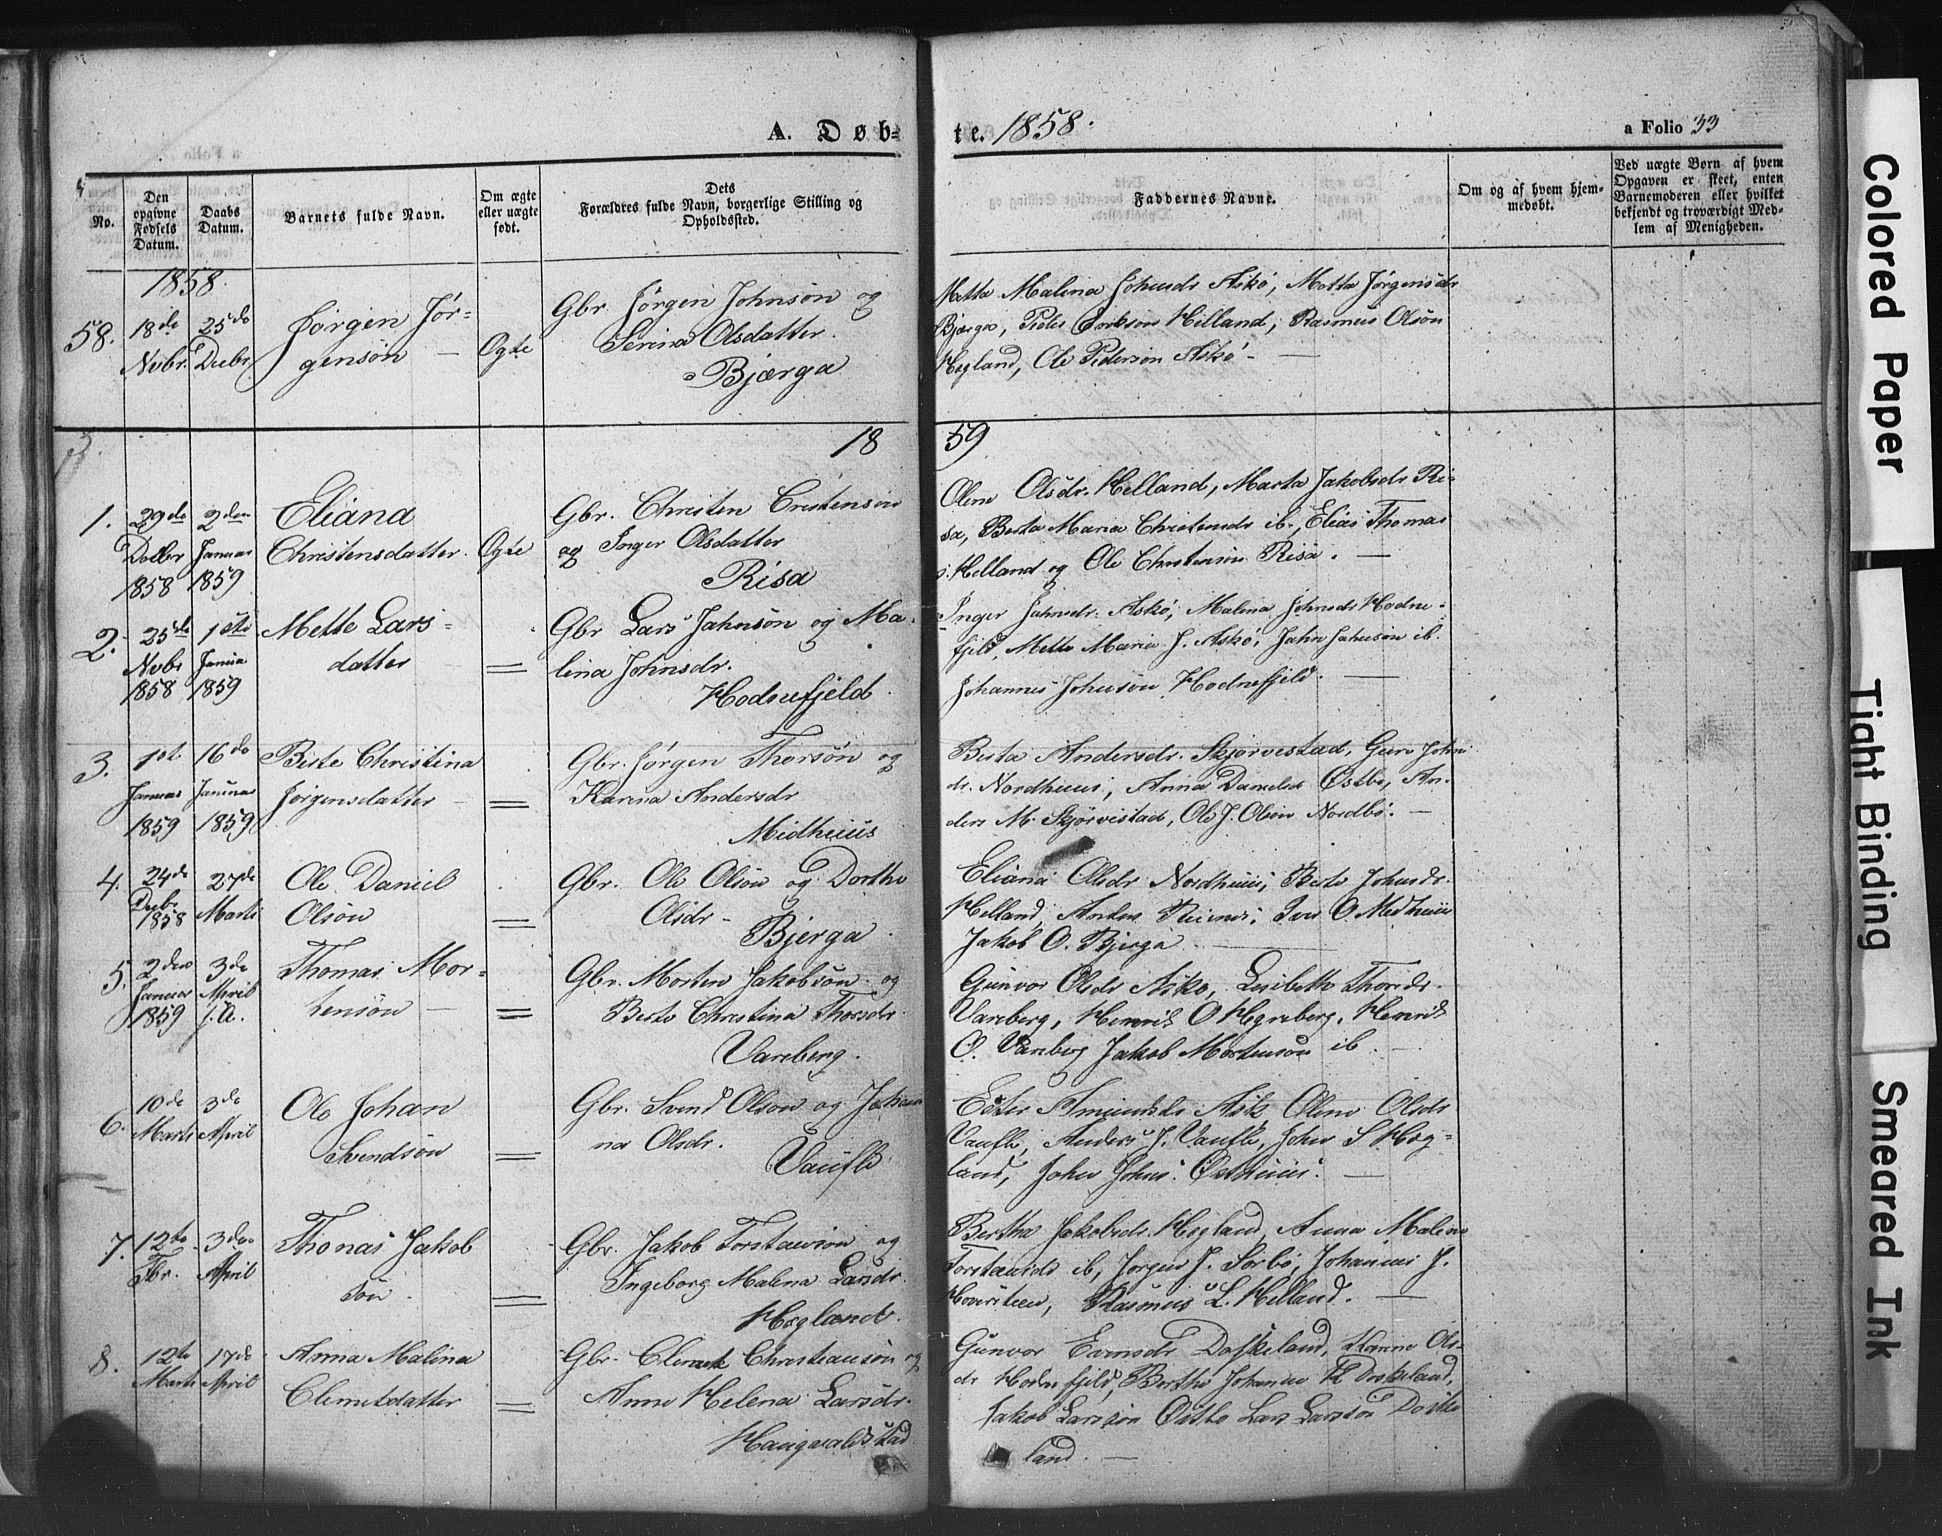 A. Døb-
te. 1858.
a Folio 33
No.
Den opgivne Fødsels Datum.
Daabs Datum.
Barnets fulde Navn.
Om ægte eller uægte født.
Dets Forældres fulde Navn, borgerlige Stilling og Opholdssted.
Faddernes Navne.
Om og af hvem hjemmedøbt.
Ved uægte Børn af hvem
Opgaven er skeet, enten
Barnemoderen eller hvilket
bekjendt og troværdigt Med-
lem af Menigheden.
1858
58.
18de
Novbr.
25de
Decbr
Jørgen Jør-
gensøn
Ægte
Gbr Jørgen Johnsøn og
Serina Olsdatter
Bjærga
Metta Malena Johnsdr Askø, Metta Jørgensdr
Bjærga, Peder Eriksøn Helland, Rasmus Olsøn
Hegland, Ole Pedersøn Askø
18
59
1.
29de
Decbr
1858
2den
Januar
1859
Eliana
Christensdatter.
Ægte
Gbr. Christen Cristensøn
og Inger Olsdatter
Risa
Olene Olsdr. Helland, Marta Jakobsdr Ri-
sa, Berta Maria Christensdr ib., Elias Thomas
s. Helland og Ole Christensøn Risa.
2.
25de
Novbr
1858
1ste
Janua
1859
Mette Lars-
datter
Gbr Lars Jahnsøn og Ma-
lina Johnsdr.
Hodnefjeld
Inger Jahnsdr. Askø, Malena Johnsdr Hodne-
fjeld, Mette Maria J. Askø, Jahn Jahnsøn ib.
Johannes Johnsøn Hodnefjeld.
3.
1st
Januar
1859
16de
Januar
1859
Birte Christina
Jørgensdatter
Gbr. Jørgen Thorsøn og
Karina Andersdr
Midhuus
Berta Andersdr. Skjørvestad, Guro John
dr. Nordhuus, Anna Danielsd Østbø, An-
ders M. Skjørvistad, Ole J. Olsøn Nordbø.
4.
24de
Decbr.
1858
27de
Marts
Ole Daniel
Olsøn
Gbr. Ole Olsøn og Dorthe
Olsdr
Bjerga
Eliana Olsdr Nordhuus, Berte Johnsdr.
Helland, Iver O Medhuus
Jakob O. Bjerga
5.
2den
Januar
1859
3de
April
f. A.
Thomas Mor-
tensøn
Gbr. Morten Jakobsøn og
Berte Christina Thorsdr
Vareberg.
Gunvor Olsdr Askø, Lisibeth Thorsdr.
Vareberg, Henrik O Hegreberg, Henrik
O. Vareberg Jakob Mortensøn ib
6.
10de
Marts
3de
April
Ole Johan
Svendsøn
Gbr. Svend Olsøn og Johan
na Olsdr.
Vaufle
Ester Amundsdr Ask Olene Olsdr
Vaufle, Anders J. Vaufle, John S Hæg-
land, John Johns. Østhuus.
7.
12te
Fbr.
3die
April
Thomas Jakob
søn
Gbr. Jakob Torstensøn og
Ingeborg Malena Larsdr
Hæglandr.
Bertha Jakobsdr. Hægland, Anna Malene
Torstensdr ib, Jørgen J. Sørbø, Johannes J.
Rasmus L. Helland.
8.
12te
Marts
17de
April
Anna Malina
Clemetsdatter
Gbr. Clemet Christiansøn og
Anne Helena Larsdr.
Haugvaldstad
Gunvor Daskeland, Hanne Ols-
dr Hodnefjeld, Berthe Johanne H Daskeland,
Jakob Larssøn Østbø Lars Larssøn Daske
land.
Colored Paper
Tight Binding
Smeared Ink